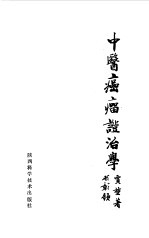 中醫癌瘤證治學
賈堃著
陕西科学技术出版社